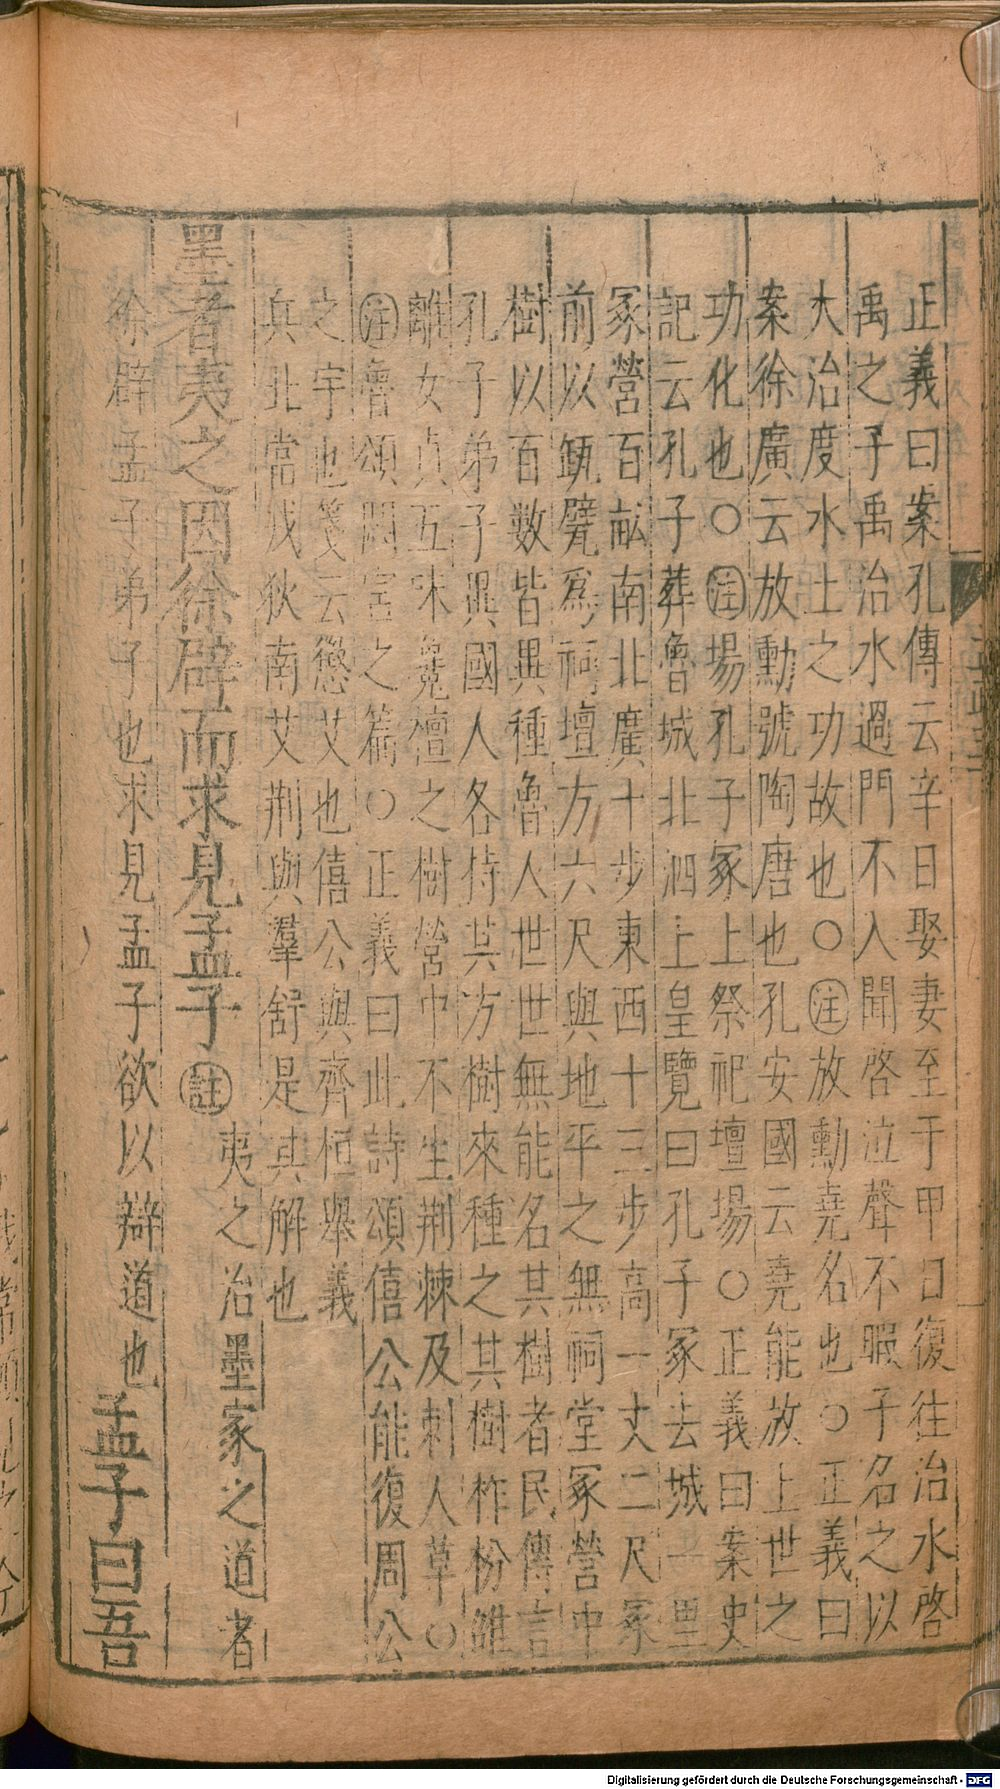 正義曰案孔傳云辛日娶妻至于甲日復往治水啓
禹之子禹治水過門不入聞啓泣聲不暇子名之以
大治度水土之功故也○注放勳堯名也○正義曰
案徐廣云放勳號陶唐也孔安國云堯能放上世之
功化也○注場孔子冢上祭祀壇場○正義曰案史
記云孔子葬魯城北泗上皇覽曰孔子冢去城一里
冢營百畝南北廣十步東西十三步高一丈二尺冢
前以瓴甓為祠壇方六尺與地平之無祠堂冢營中
樹以百數皆異種魯人世世無能名其樹者民傳言
孔子弟子異國人各持其方樹來種之其樹柞枌雒
離女貞五味毚檀之樹營中不生荆棘及刺人草○
注魯頌閟宮之篇○正義曰此詩頌僖公能復周公
之宇也箋云懲艾也僖公與齊桓舉義
兵北當戎狄南艾荆與羣舒是其解也
墨者夷之因徐辟而求見孟子註夷之治墨家之道者
徐辟孟子弟子也求見孟子欲以辯道也孟子曰吾
Digitalisierung gefördert durch die Deutsche Forschungsgemeinschaft - DFG